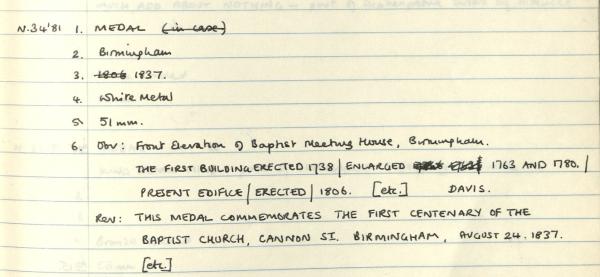 N.34'81 1. MEDAL (in case)
2. Birmingham
3. 1806 1837.
4. White Metal
5. 51 mm.
6. Obv: Front Elevation of Baptist Meeting House, Birmingham.
THE FIRST BUILDING ERECTED 1738 / ENLARGED 1763 AND 1780. /
PRESENT EDIFICE / ERECTED / 1806. [etc.] DAVIS.
Rev: THIS MEDAL COMMEMORATES THE FIRST CENTENARY OF THE
BAPTIST CHURCH, CANNON ST. BIRMINGHAM, AUGUST 24. 1837.
[etc]